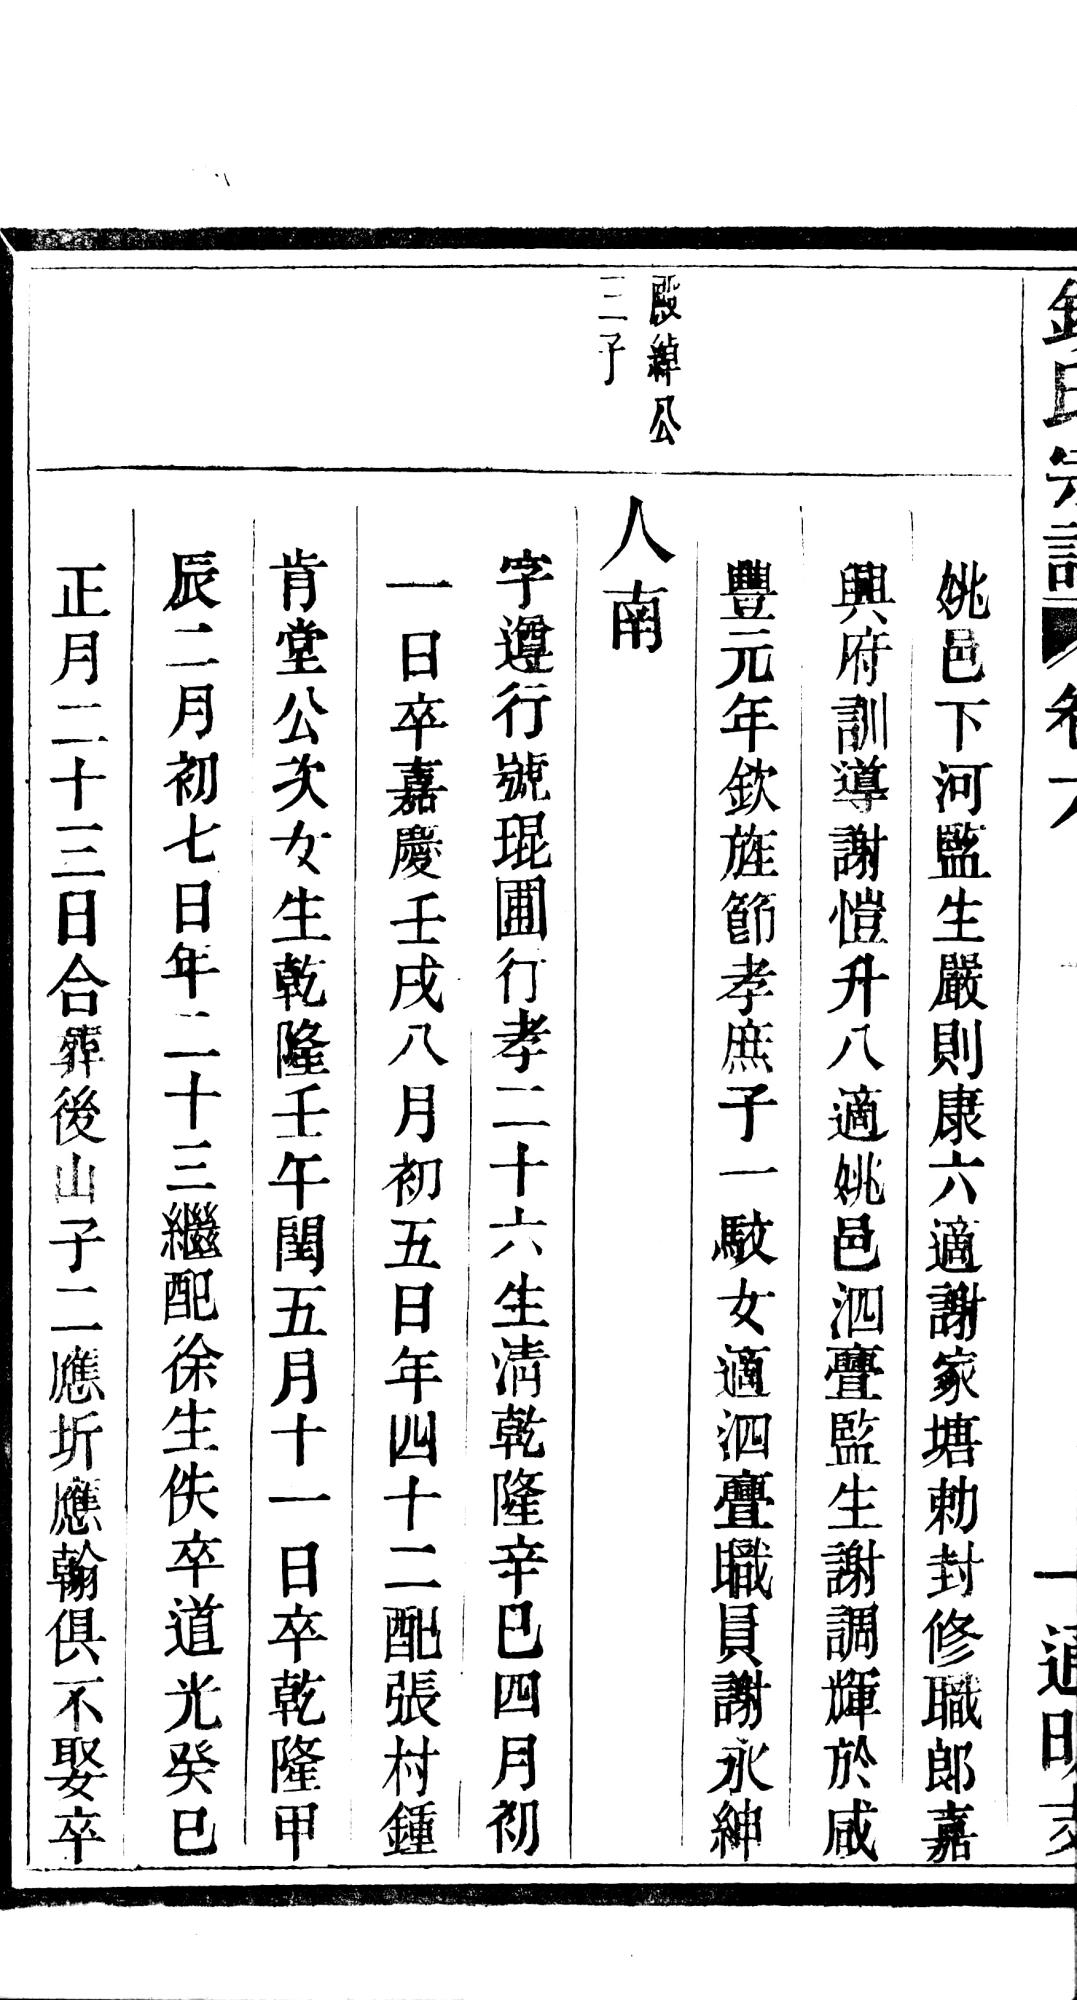 氏宗譜 卷六 一 通明
姚邑下河監生嚴則康六適謝家塘勅封修職郎嘉
興府訓導謝愷升八適姚邑泗疊監生謝調輝於咸
豐元年欽旌節孝庶子一駇女適泗疊職員謝永紳
殿綽公
三子
人南
字遵行號琨圃行孝二十六生清乾隆辛巳四月初
一日卒嘉慶壬戌八月初五日年四十二配張村鍾
肯堂公次女生乾隆壬午閏五月十一日卒乾隆甲
辰二月初七日年二十三繼配徐生佚卒道光癸巳
正月二十三日合葬後山子二應圻應翰俱不娶卒